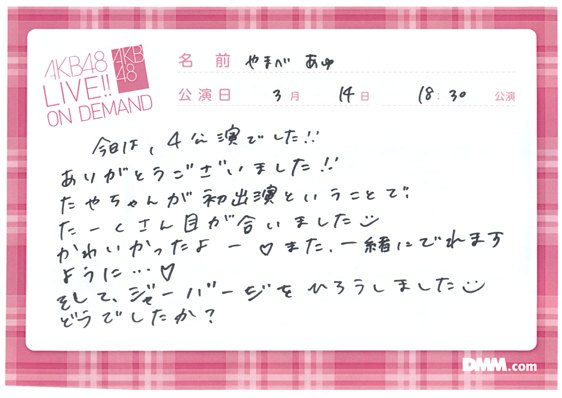 AKB48
LIVE!!
ON DEMAND
AKB
48
名前 やまべ あゆ
公演日 3月 14日 18:30 公演
今日は、4公演でした!!
ありがとうございました!!
たやちゃんが初出演ということで
たーくさん目が合いました
かわいかったよー♡また、一緒にでれます
ように…♡
そして、ジャーバージをひろうしました
どうでしたか?
DMM.com